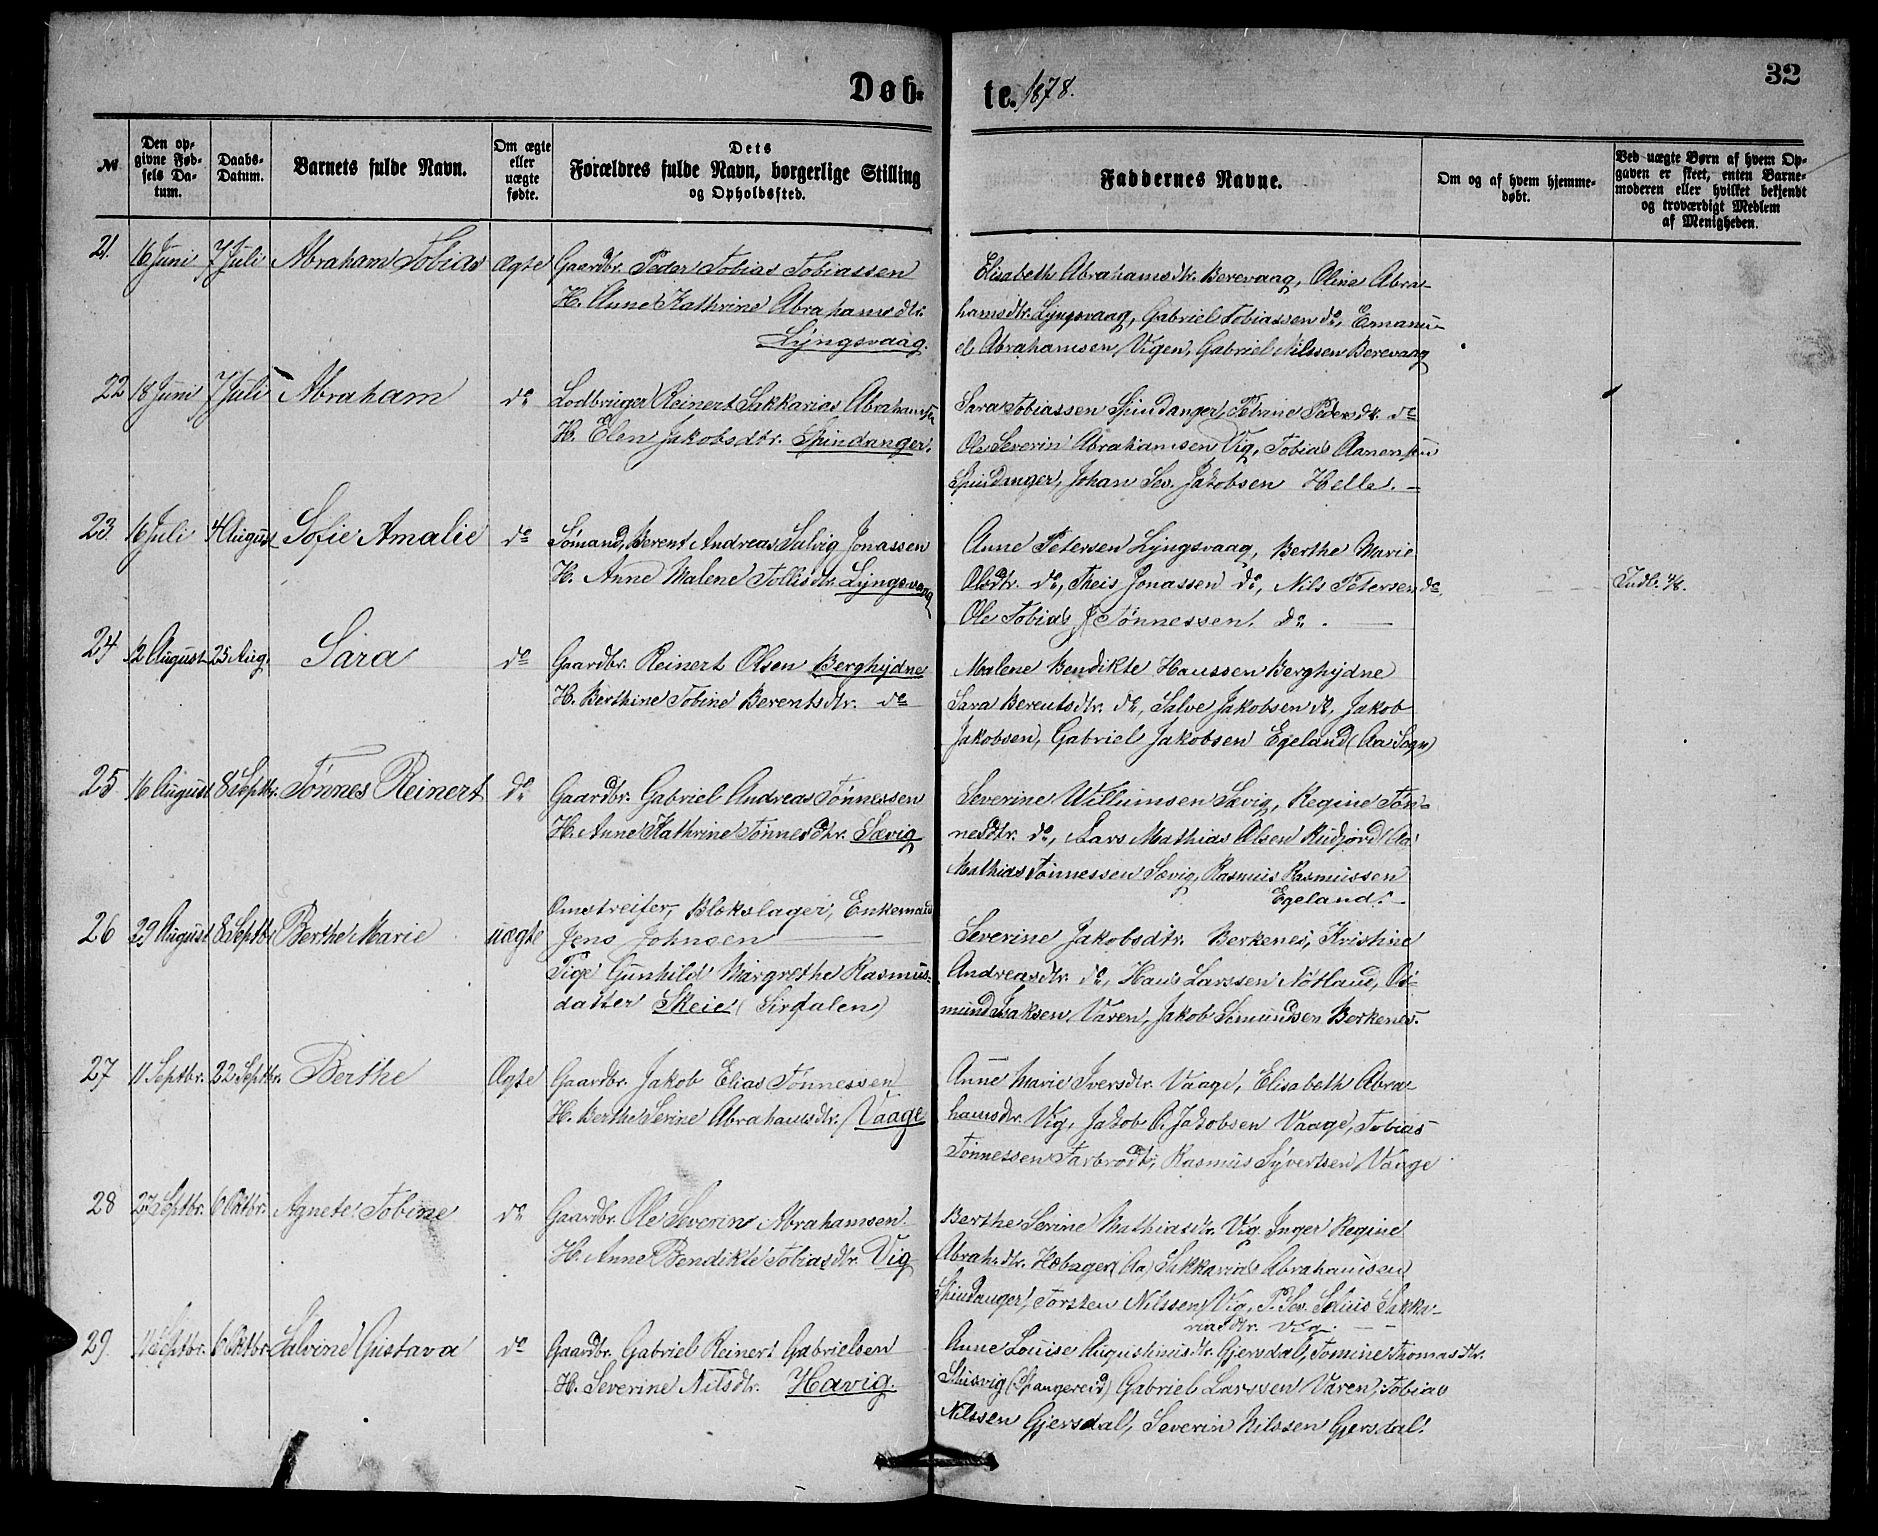 Døb-
te. 1878.
32
№
Den op-
givne Fød-
sels Da-
tum.
Daabs-
Datum.
Barnets fulde Navn.
Om ægte
eller
uægte
fødte.
Dets
Forældres fulde Navn, borgerlige Stilling
og Opholdssted.
Faddernes Navne.
Om og af hvem hjemme-
døbt.
Ved uægte Børn af hvem Op-
gaven er skeet, enten Barne-
moderen eller hvilket bekjendt
og troværdigt Medlem
af Menigheden.
21. 16 Juni 7 Juli Abraham Tobias Ægte Gaardbr. Peder Tobias Tobiassen
H. Anne Kathrine Abrahamsdtr.
Lyngsvaag.
Elisabeth Abrahamsdtr. Berevaag, Oline Abra-
hamsdtr. Lyngsvaag, Gabriel Tobiassen do, Emanu-
el Abrahamsen Vigen, Gabriel Nilssen Berevaag
22 18 Juni 7 Juli Abraham do Lodbruger Reinert Sakkarias Abrahamsen
H. Elen Jakobsdtr. Spindanger.
Sara Tobiassen Spindanger, Petrine Pedersdtr. do
Ole Severin Abrahamsen Vig, Tobias Aanensen
Spindanger, Johan Sev. Jakobsen Helle. -
23. 16 Juli 4 August Sofie Amalie do Sømand, Berent Andreas Salvig Jonassen
H. Anne Malene Tollisdtr. Lyngsvaag
Anne Petersen Lyngsvaag, Berthe Marie
Olsdtr. do, Theis Jonassen do, Nils Petersen do
Ole Tobias Tønnessen. do.
Indl.
24 2 August 25 Aug. Sara do Gaardbr. Reinert Olsen Berghydne
H. Berthine Tobine Berentsdtr. do
Malene Bendikte Hanssen Berghydne
Sara Berentsdtr. do, Salve Jakobsen do, Jakob
Jakobsen, Gabriel Jakobsen Egeland (Aa Sogn)
25 16 August 8 Septbr. Tønnes Reinert do Gaardbr. Gabriel Andreas Tønnessen
H. Anne Kathrine Tønnesdtr. Sævig
Severine Willumsen Sævig, Regine Tøn-
nesdtr. do, Lars Mathias Olsen Rudjord (Aa)
Mathias Tønnessen Sævig, Rasmus Rasmussen
Egeland. -
26 29 August 8 Septbr Berthe Marie uægte Omstreifer, Blokslager, Enkemand
Jens Johnsen
Pige Gunhild Margrethe Rasmus-
datter Skeie (Sirdalen)
Severine Jakobsdtr. Berkenes, Kristine
Andreasdtr. do, Hans Larssen Nøtland, Os-
mund Isaksen Varen, Jakob Somundsen Berkenes.
27 11 Septbr. 22 Septbr. Berthe Ægte Gaardbr. Jakob Elias Tønnessen
H. Berthe Serine Abrahamsdtr. Vaage
Anne Marie Iversdtr. Vaage, Elisabeth Abra-
hamsdtr. Vig, Jakob A. Jakobsen Vaage, Tobias
Tønnessen Farbrodt, Rasmus Syvertsen Vaage
28 27 Septbr. 6 Oktbr. Agnete Tobine do Gaardbr. Ole Severin Abrahamsen
H. Anne Bendikte Tobiasdtr. Vig
Berthe Serine Mathiasdtr. Vig. Inger Regine
Abrah.dtr. Høbager (Aa) Sakkarias Abrahamsen
Spindanger, Torsten Nilssen Vig, P. Sev. Sakka-
riasdtr. Vig. -
29. 11 Septbr. 6 Oktbr Salvine Gustava do Gaardbr. Gabriel Reinert Gabrielsen
H. Severine Nilsdtr. Havig.
Anne Louise Augustinusdtr. Gjersdal, Tomine Thomasdtr.
(Spangereid) Gabriel Larssen Varen, Tobias
Nilssen Gjersdal, Severin Nilssen Gjersdal.